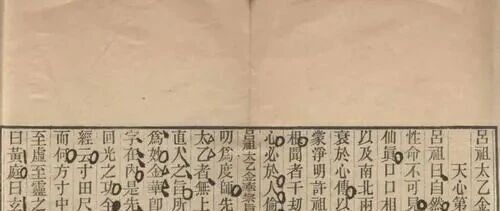 呂祖太乙金
天心第
呂祖曰自然
性命不可見
仙眞口口相
以及南北兩
衰於心傳以
蒙淨明許祖
相聞者千
心必於人偷
呂祖太乙金華宗旨
叨為度師先
太乙者無上
直人之言所
為妙金華即
字在內是先
回光之功全
經云寸田尺
而何方寸中
至虛至靈之
曰黃庭曰玄